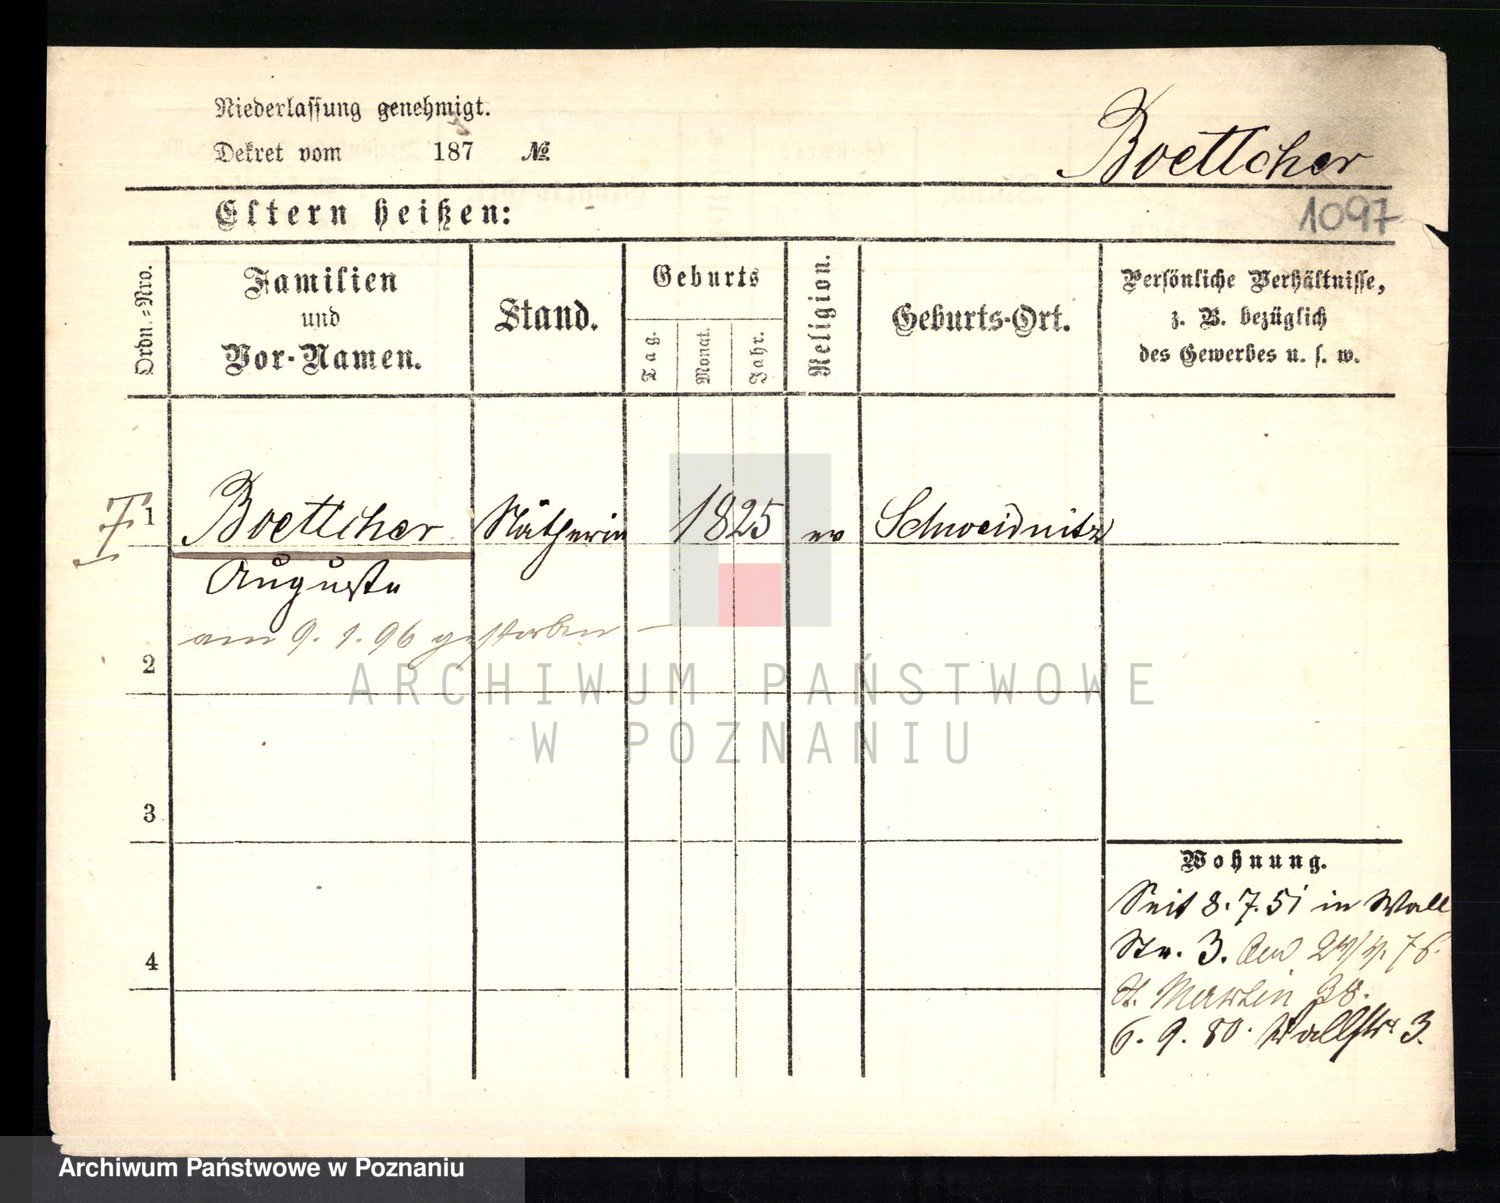 Niederlassung genehmigt.
Dekret vom 187 №
Boettcher
Eltern heißen:
1097
Ordn.=Nro.
Familien
und
Vor-Namen.
Stand.
Geburts
Tag.
Monat.
Jahr.
Religion.
Geburts-Ort.
Persönliche Verhältnisse,
z. B. bezüglich
des Gewerbes u. s. w.
1 Boettcher Nätherin 1825 ev Schweidnitz
Auguste
am 9. 1. 96 gestorben —
2
ARCHIWUM PAŃSTWOWE
W POZNANIU
3
4
Wohnung.
Seit 8. 7. 51 in Wall
Str. 3.
St. Martin 38.
6. 9. 80. Wallstr 3.
Archiwum Państwowe w Poznaniu